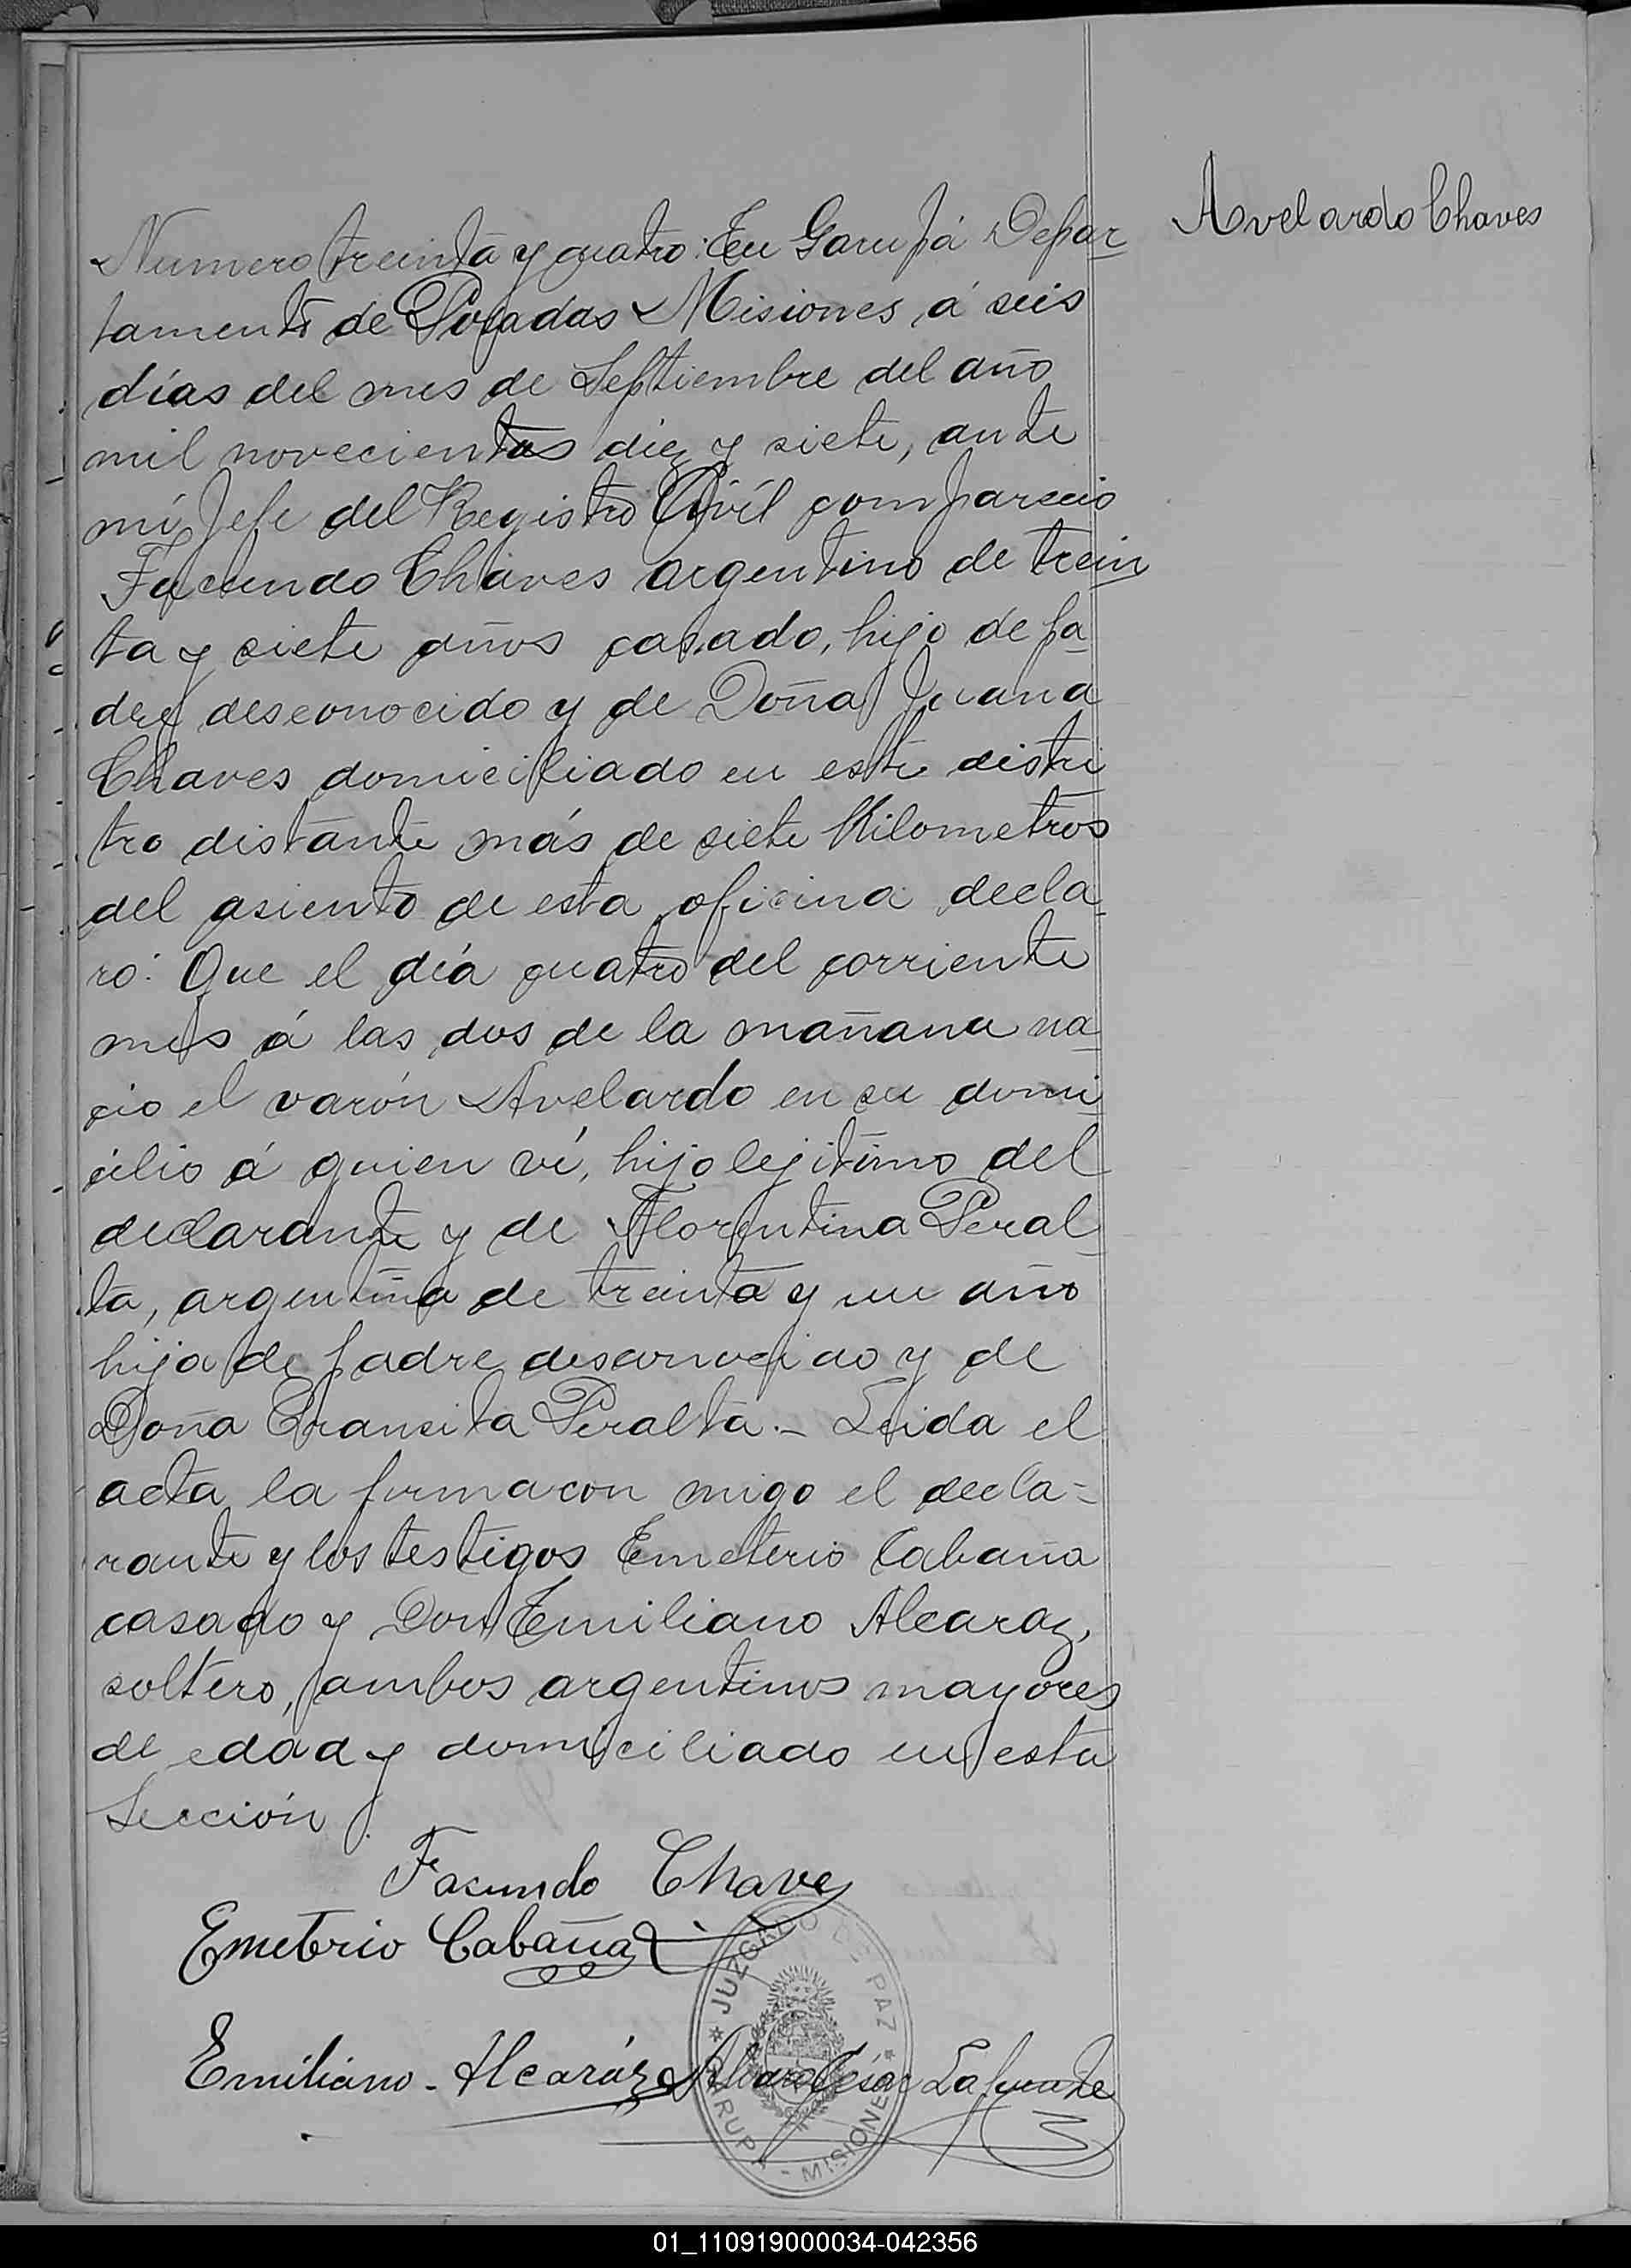 Avelardo Chaves
Numero treinta y cuatro: En Garupá Depar
tamento de Posadas Misiones á seis
días del mes de Septiembre del año
mil novecientos diez y siete, ante
mí Jefe del Registro Civíl comparecio
Facundo Chaves argentino de trein
ta y siete años casado, hijo de pa
dre desconocido y de Doña Juana
Chaves domiciliado en este distri
tro distante más de siete Kilometros
del asiento de esta oficina decla
ró: Que el día cuatro del corriente
mes á las dos de la mañana na
cio el varón Avelardo en su domi
cilio á quien ví, hijo lejitimo del
declarante y de Florentina Peral
ta, argentina de treinta y un año
hija de padre desconocido y de
Doña Transita Peralta.- Leida el
acta la firma con migo el decla=
rante y los testigos Emeterio Cabaña
casado y Don Emiliano Alcaraz,
soltero, ambos argentinos mayores
de edad y domiciliado en esta
Sección.
Facundo Chave
Emeterio Cabaña
Emiliano - Alcaráz Cesar Lafuente
JUZGADO DE PAZ
GARUPA - MISIONES
01_110919000034-042356